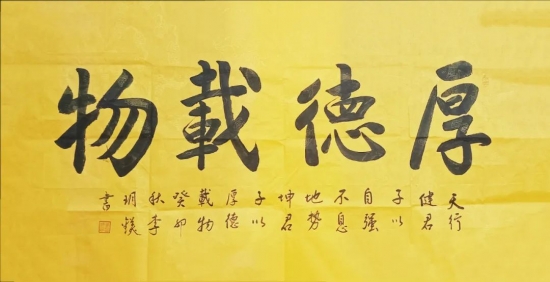 厚德載物
天行
健君
子以
自强
不息
地势
坤君
子以
厚德
載物
癸卯
秋李
玥
書